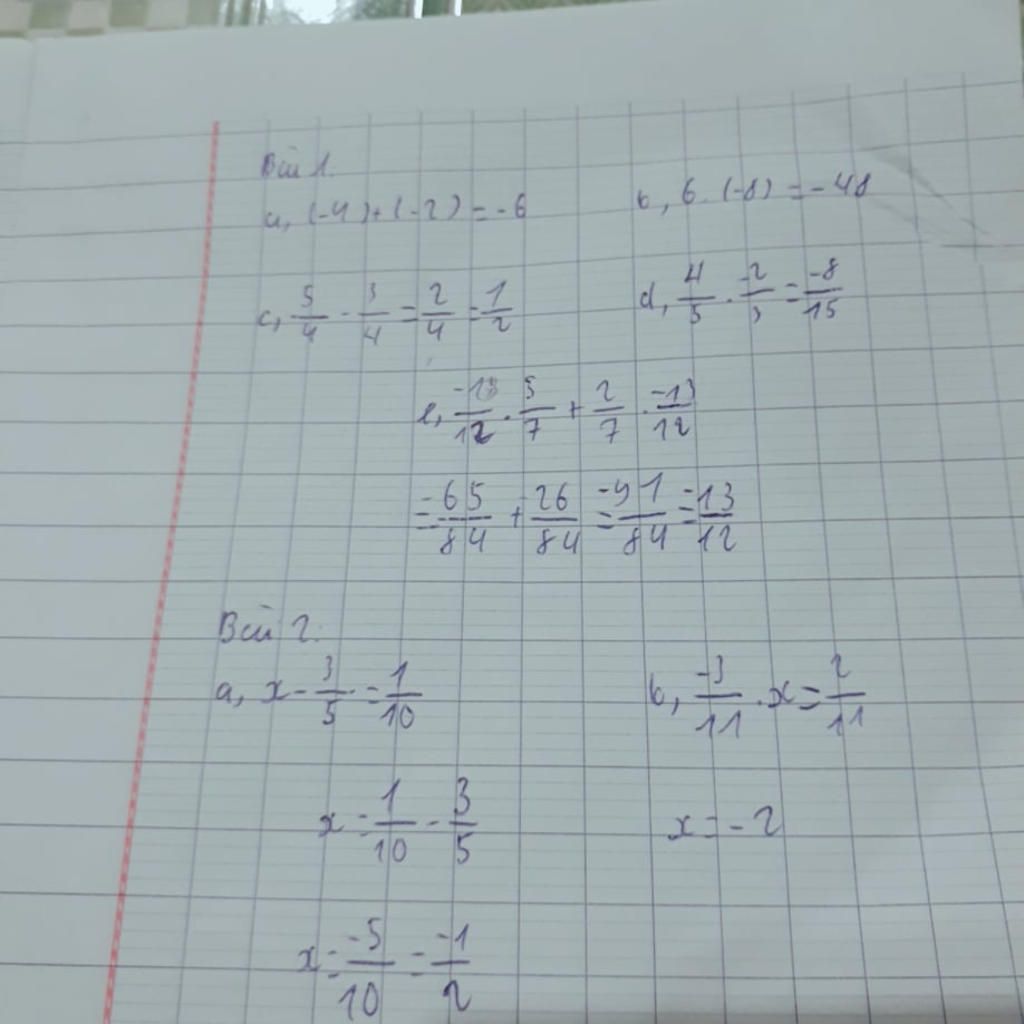 Bài 1.
a, (-4)+(-2) = -6    b, 6.(-8) = -48
c, 5/4 - 3/4 = 2/4 = 1/2    d, 4/5 . -2/3 = -8/15
e, -13/12 . 5/7 + 2/7 . -13/12
= -65/84 + 26/84 = -91/84 = -13/12
Bài 2.
a, x - 3/5 = 1/10    b, -3/11 . x = 2/11
x = 1/10 - 3/5    x = -2
x = -5/10 = -1/2